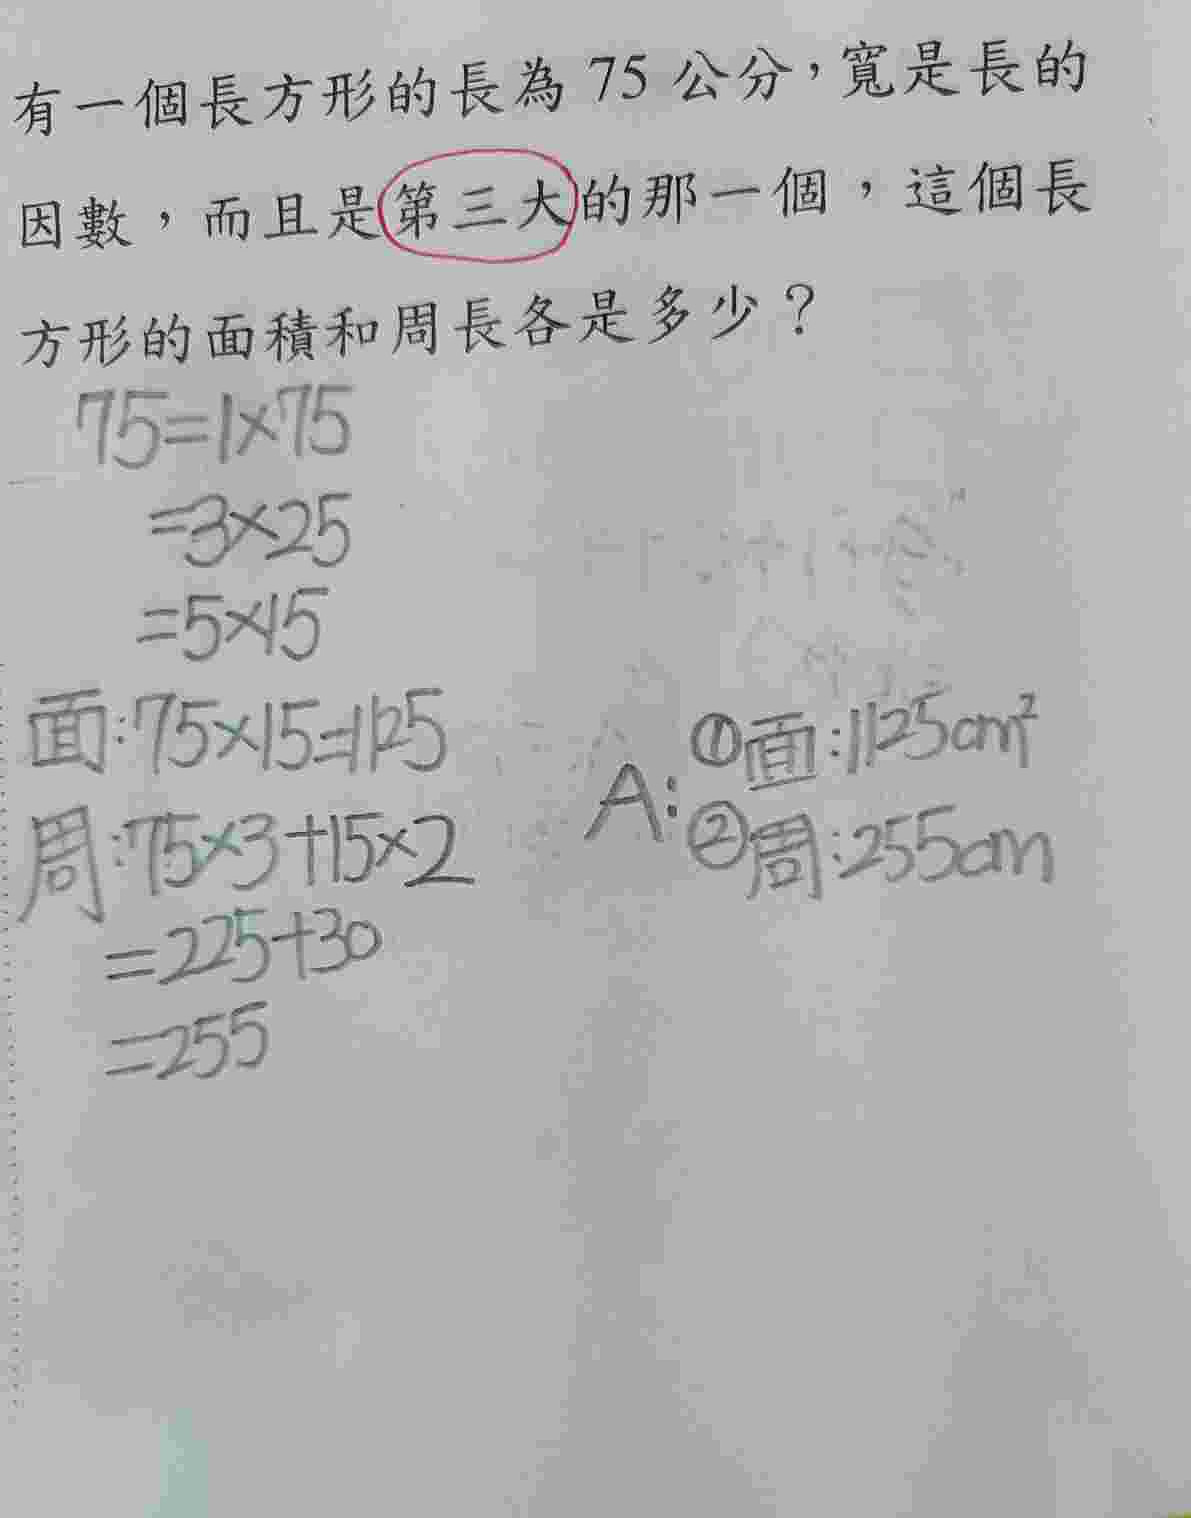 有一個長方形的長為 75 公分，寬是長的
因數，而且是第三大的那一個，這個長
方形的面積和周長各是多少？
75=1×75
=3×25
=5×15
面:75×15=1125
周:75×3+15×2
=225+30
=255
A:①面:1125cm²
②周:255cm